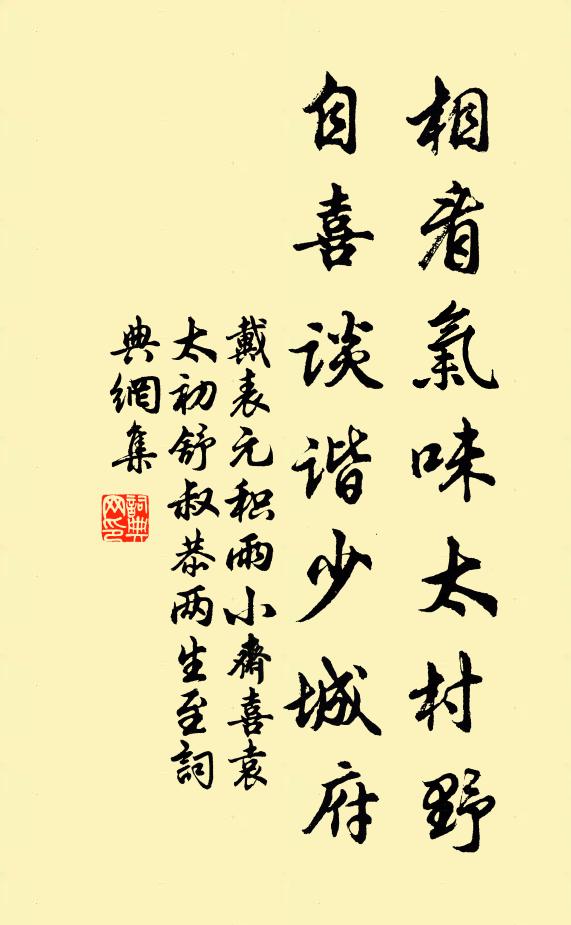 相看氣味太村野
自喜談諧少城府
戴表元积雨小齋喜袁
太初舒叔恭两生至詞
典網集
詞典網印